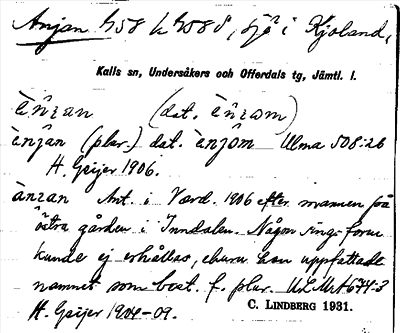 Anjan 458 h 4588, sjö i Kjoland,
Kalls sn, Undersåkers och Offerdals tg, Jämtl. l.
(dat.
(plur.) dat. Ulma 508:26
H. Geijer 1906.
Ant. i Vard. 1906 efter mannen på
östra gården i Inndalen. Någon sing. form
kunde ej erhållas, churu han uppfattade
namnet som best. f. plur. ULMA 674:3
H. Geijer 1904-09. C. LINDBERG 1931.